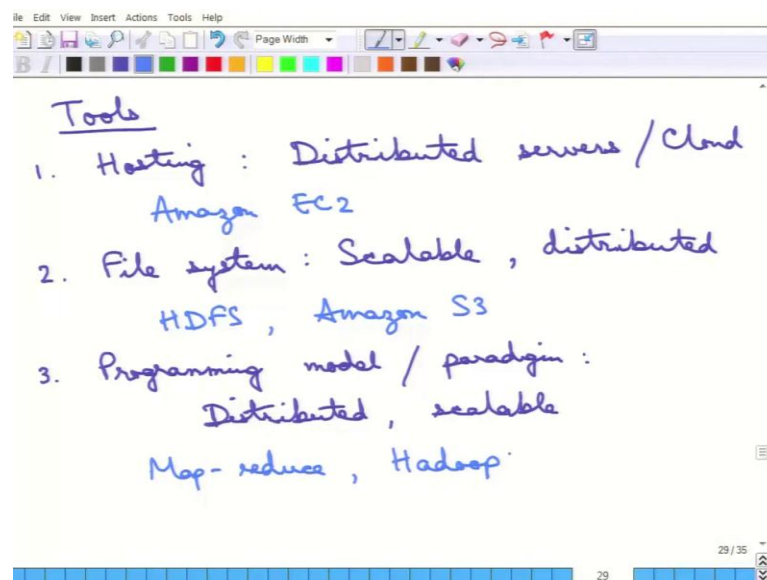 ile Edit View Insert Actions Tools Help
Page Width
B I
Tools
1. Hosting : Distributed servers / Cloud
Amazon EC2
2. File system : Scalable , distributed
HDFS , Amazon S3
3. Programming model / paradigm :
Distributed , scalable
Map-reduce , Hadoop
29 / 35
29